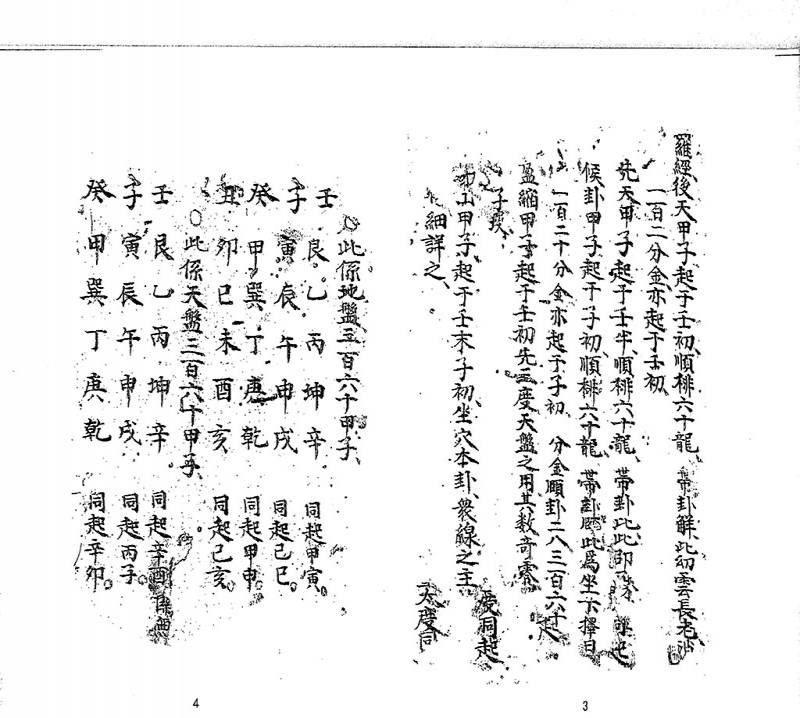 羅經後天甲子起于壬初順排六十龍 帶卦解此幻雲長老
一百二分金亦起于壬初
先天甲子起于壬半順排六十龍 帶卦比此即
候卦甲子起于子初順排六十龍 帶卦 此爲坐下擇日
一百二十分金亦起于子初 分金順卦二八三百六十 起
盈縮甲子起于壬初先三度天盤之用其數奇零
子
山甲子起于壬末子初坐穴本卦衆線之主 洞起
細詳之 太度同
○此係地盤三百六十甲子
壬 艮 乙 丙 坤 辛 同起甲寅
子 寅 辰 午 申 戌 同起己巳
癸 甲 巽 丁 庚 乾 同起甲申
丑 卯 巳 未 酉 亥 同起己亥
○此係天盤三百六十甲子
壬 艮 乙 丙 坤 辛 同起辛酉
子 寅 辰 午 申 戌 同起丙子
癸 甲 巽 丁 庚 乾 同起辛卯
4
3